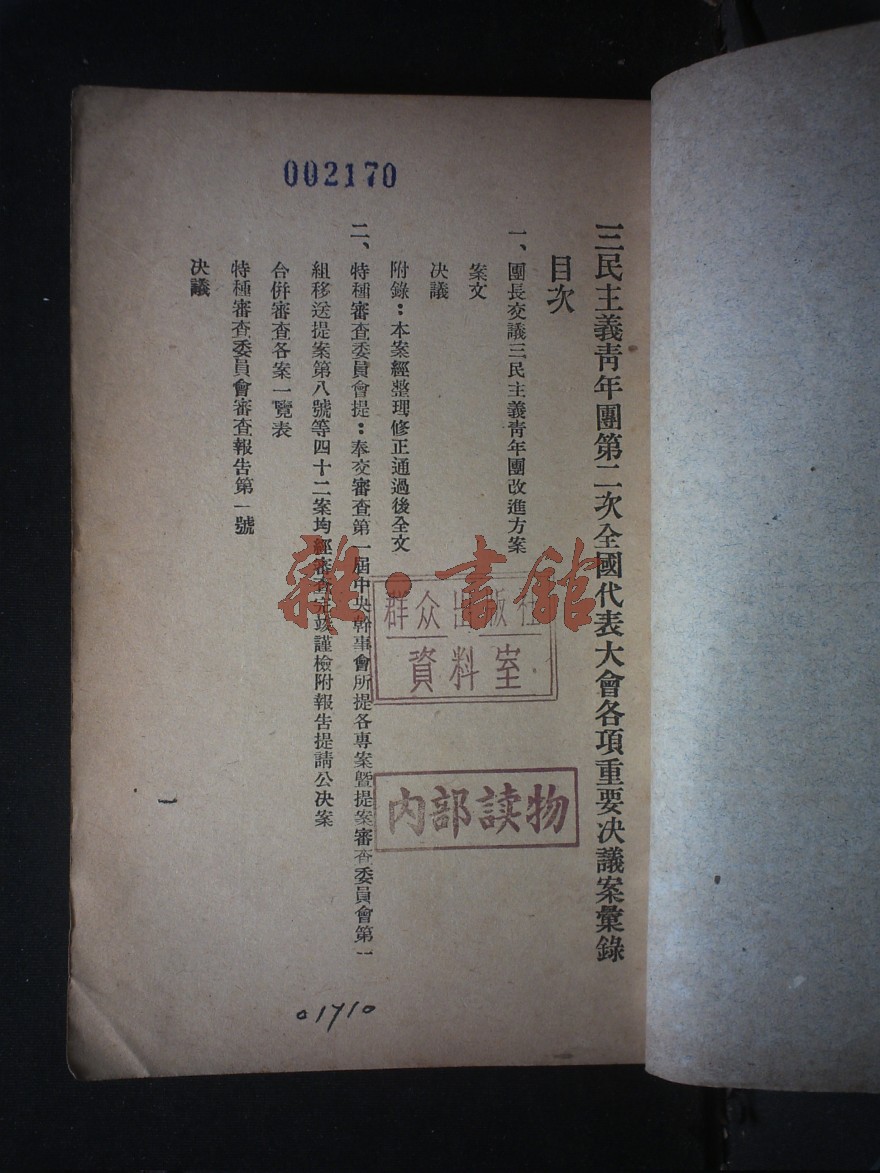 002170
三民主義靑年團第二次全國代表大會各項重要決議案彙錄
目次
一、團長交議三民主義靑年團改進方案
案文
決議
附錄：本案經整理修正通過後全文
二、特種審查委員會提：奉交審查第一屆中央幹事會所提各專案曁提案審查委員會第一
組移送提案第八號等四十二案均經審查完竣謹檢附報告提請公決案
合併審查各案一覽表
特種審查委員會審查報告第一號
決議
一
群众出版社
資料室
内部读物
雜·書館
01710